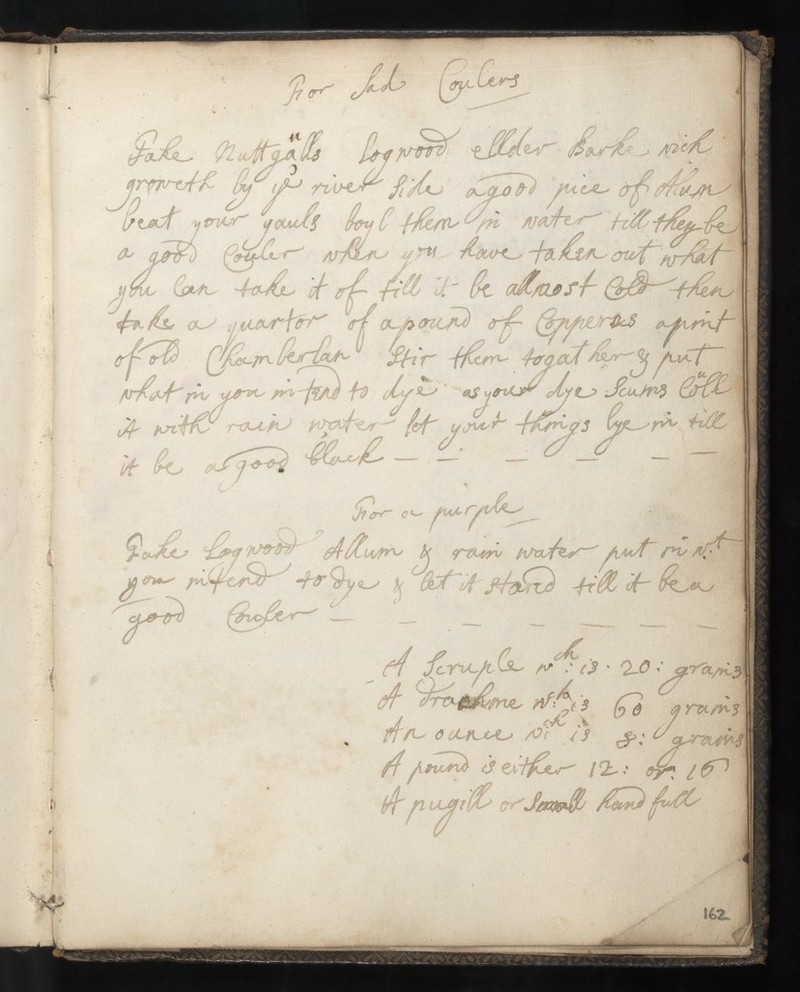 For Sad Coulers
Take Nuttgalls Logwood ellder Barke wich
groweth by ye river side a good pice of Alum
beat your gauls boyl them in water till they be
a good Couler when you have taken out what
you Can take it of till it be allmost Cold then
take a quartor of a pound of Copperus a pint
of old Chamberlan Stir them togather & put
what in you intend to dye as your dye Scums
it with rain water let your things lye in till
it be a good black — — — — — —
For a purple
Take Logwood Allum & rain water put in wt
you intend to dye & let it stand till it be a
good Couler — — — — — — —
A Scruple wch: is · 20: grains
A drachme wch is 60 grains
An ounce wch is 8: grains
A pound is either 12: or 16
A pugill or Small handfull
162